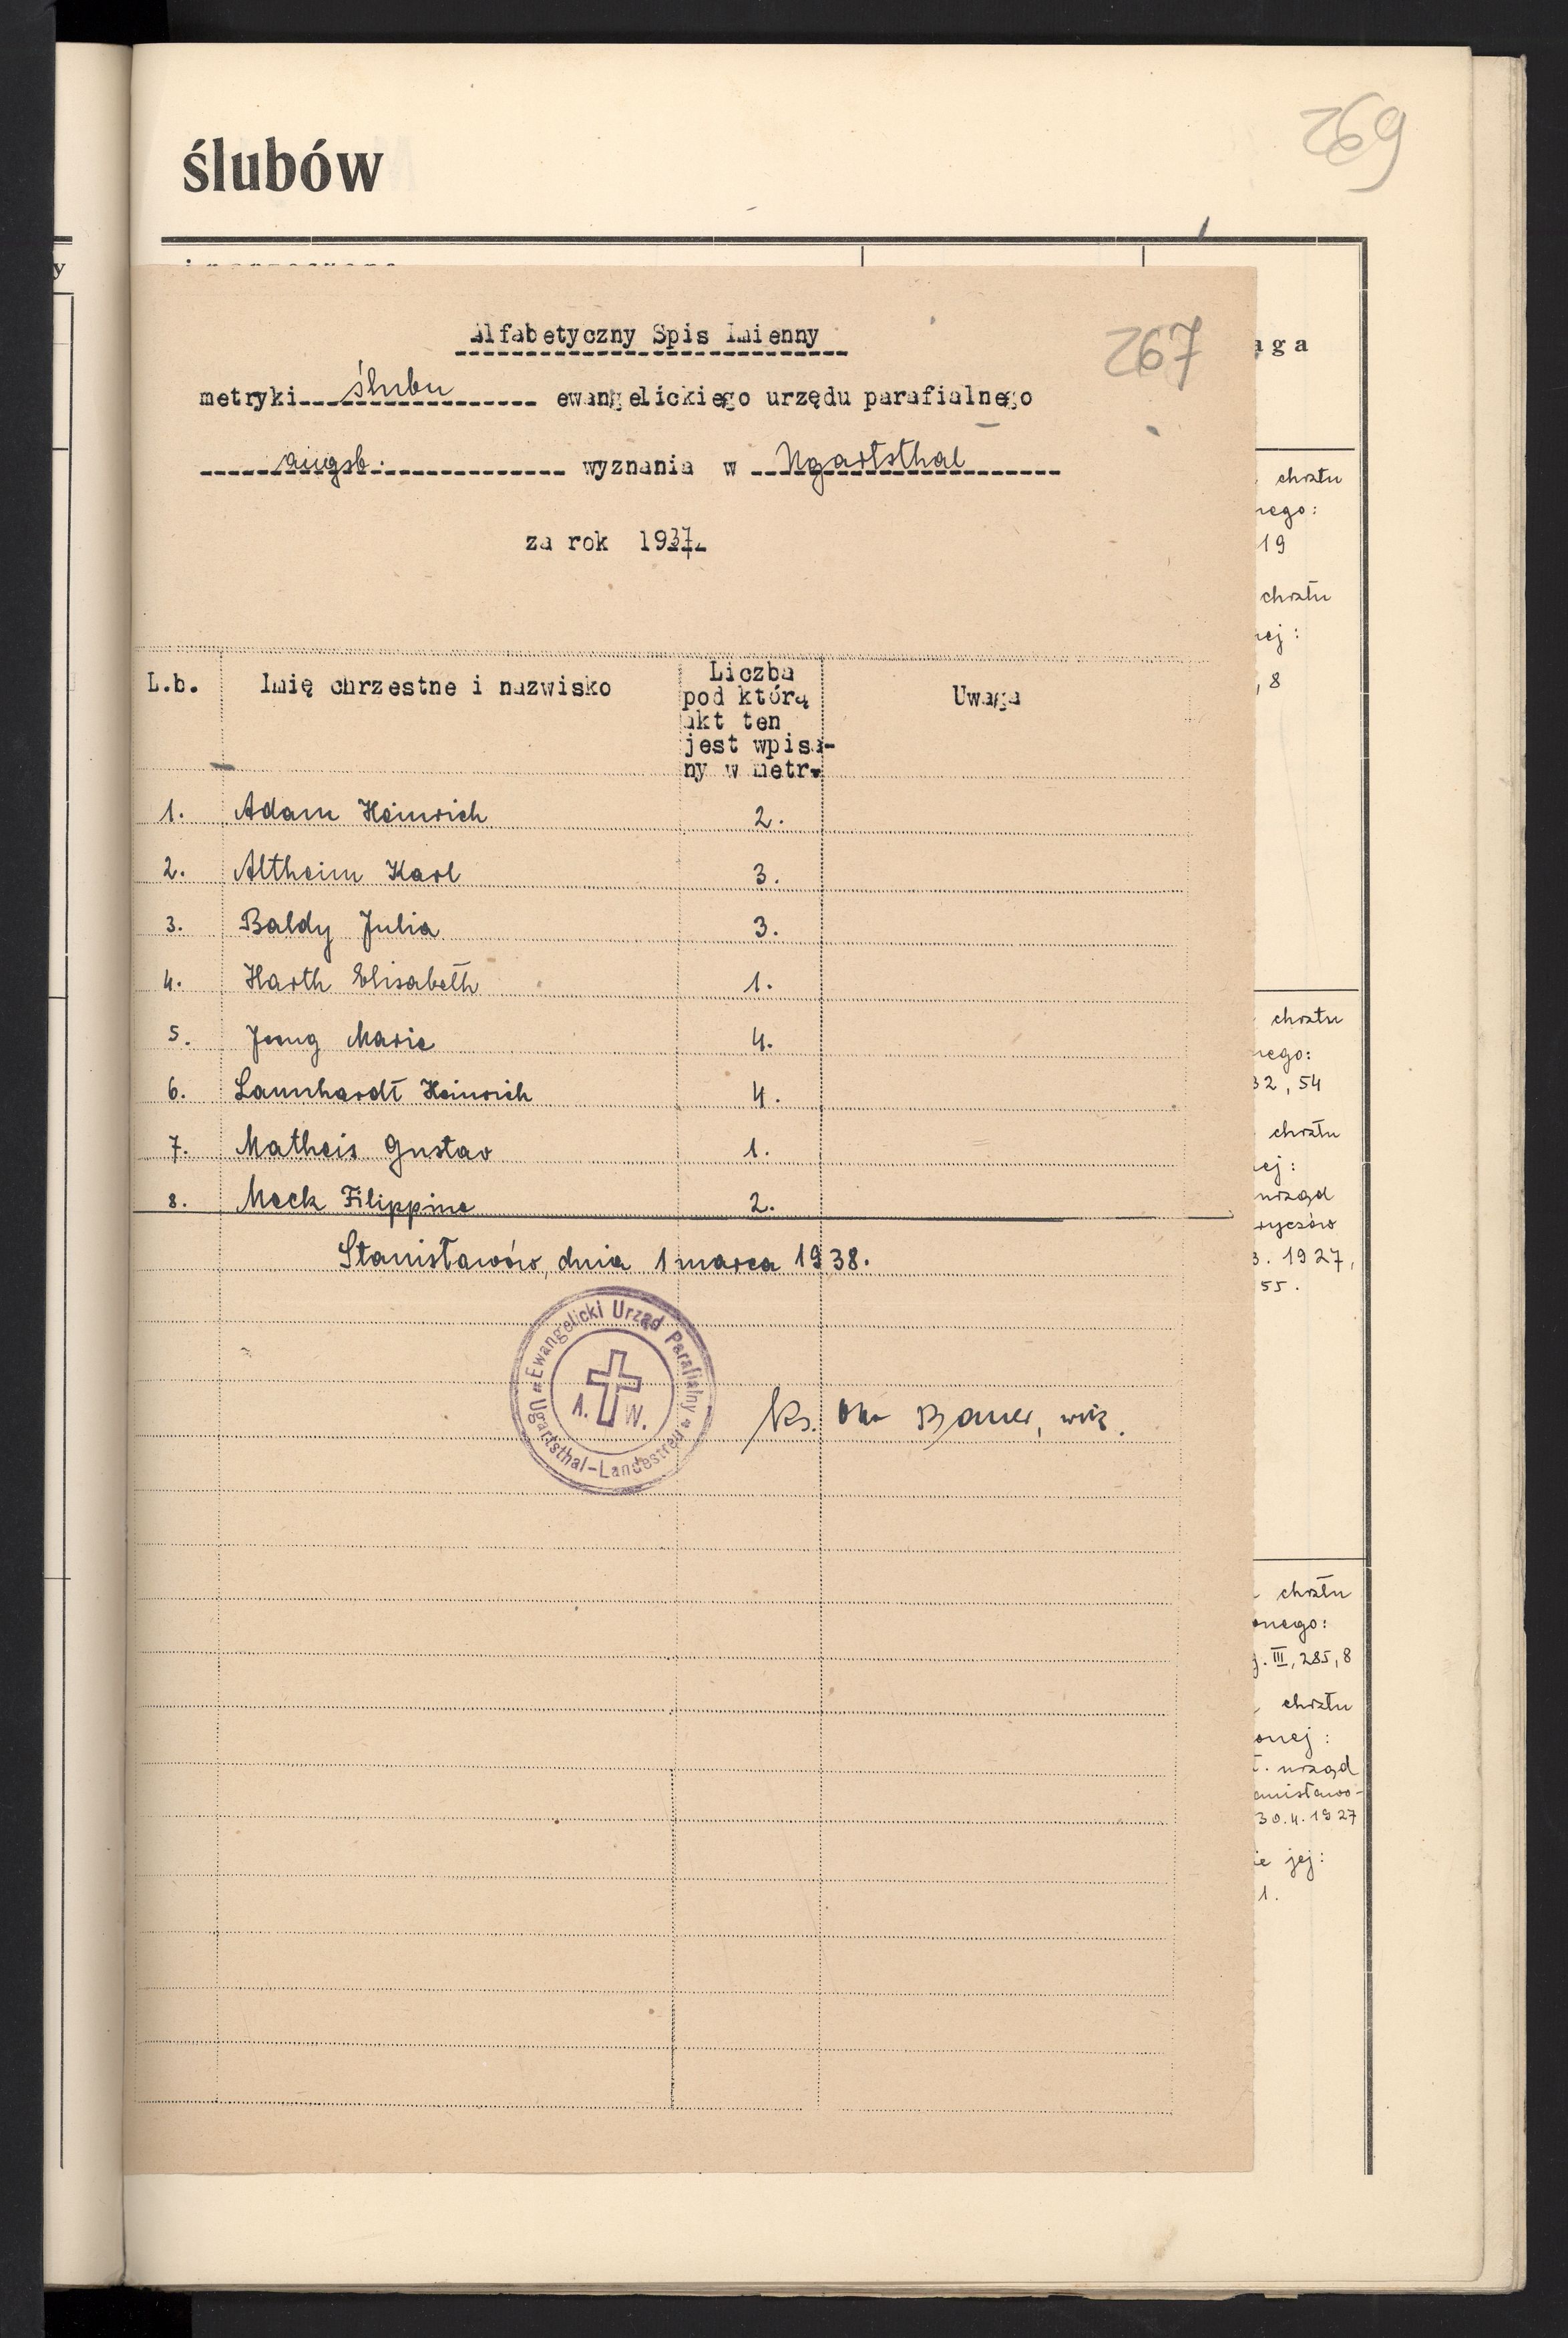 ślubów
269
Alfabetyczny Spis Imienny
267
metryki ślubu ewangelickiego urzędu parafialnego
augsb. wyznania w Ugartsthal
za rok 1937.
L.b. Imię chrzestne i nazwisko Liczba pod którą akt ten jest wpisa- ny w metr. Uwaga
1. Adam Heinrich 2.
2. Altheim Karl 3.
3. Baldy Julia 3.
4. Harth Elisabeth 1.
5. Jung Marie 4.
6. Launhardt Heinrich 4.
7. Matheis Gustav 1.
8. Meck Filippine 2.
Stanisławów, dnia 1 marca 1938.
Ewangelicki Urząd Parafialny
A. W.
Ugartsthal-Landestreu
Ks. Bauer, wik.
y
aga
chrztu
nego:
19
chrztu
nej:
, 8
chrztu
nego:
32, 54
chrztu
nej:
urząd
3. 1927,
55.
chrztu
onego:
III, 285, 8
chrztu
onej:
urząd
anisławo-
30.4.1927
ie jej:
1.